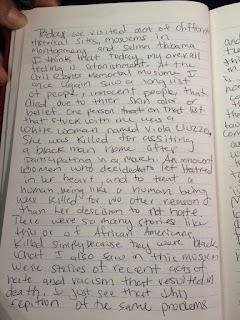 Today we visited alot of different
historical sites, museums in
montgomery and selma Alabama.
I think that today my overall
feeling is astonishment. At the
Civil Rights Memorial museum I
once again saw a long list
of people, innocent people, that
died due to thier skin color or
belief. One person that on that list
that stuck with me was a
white woman named Viola Liuzzo.
She was killed for assisting
a black man home after
participating in a march. An innocent
woman who decided not hatred
in her heart, and to treat a
human being like a human being
was killed for no other reason
than her descision to not hate.
There were so many stories like
this or of African Americans
killed simply because they were black
What I also saw in this museum
were stories of recent acts of
hate and racism that resulted in
death. I just see that this
repition of the same problems